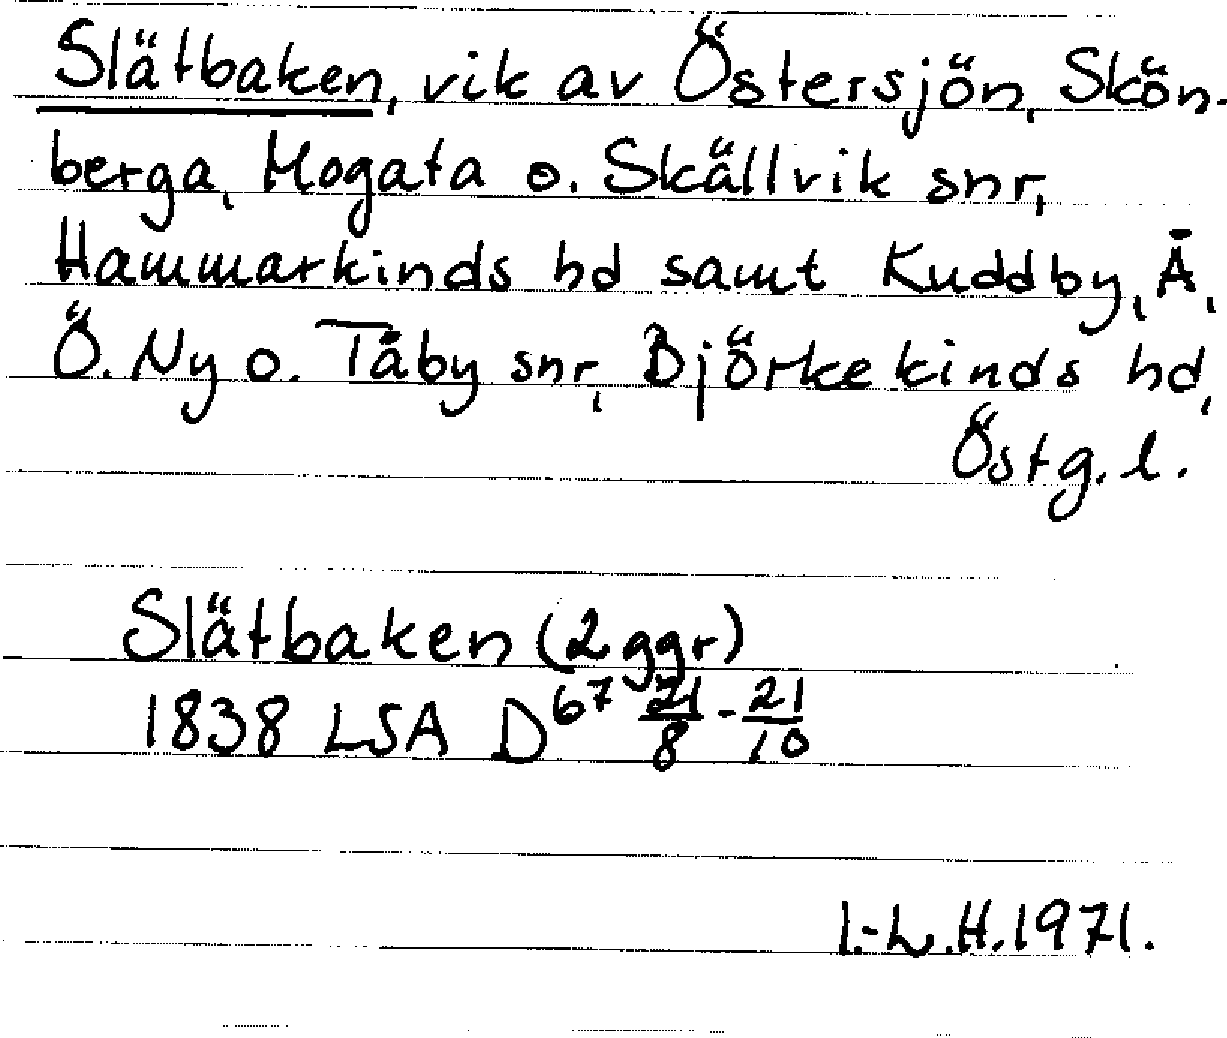 Slätbaken, vik av Östersjön, Skön-
berga, Mogata o. Skällvik snr,
Hammarkinds hd samt Kuddby, Å,
Ö. Ny o. Tåby snr, Björkekinds hd,
Östg. l.
Slätbaken (2 ggr)
1838 LSA D⁶⁷ 21/8 - 21/10
I.-L.H. 1971.